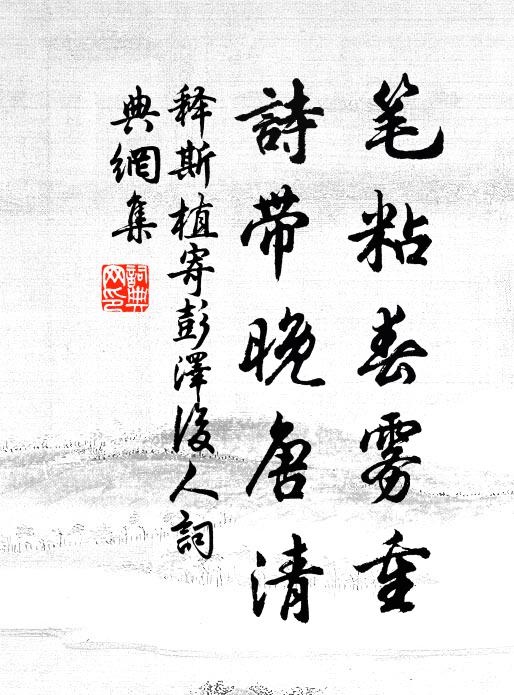 笔粘春雾重
詩带晚唐清
释斯植寄彭澤後人詞
典網集
詞典网印